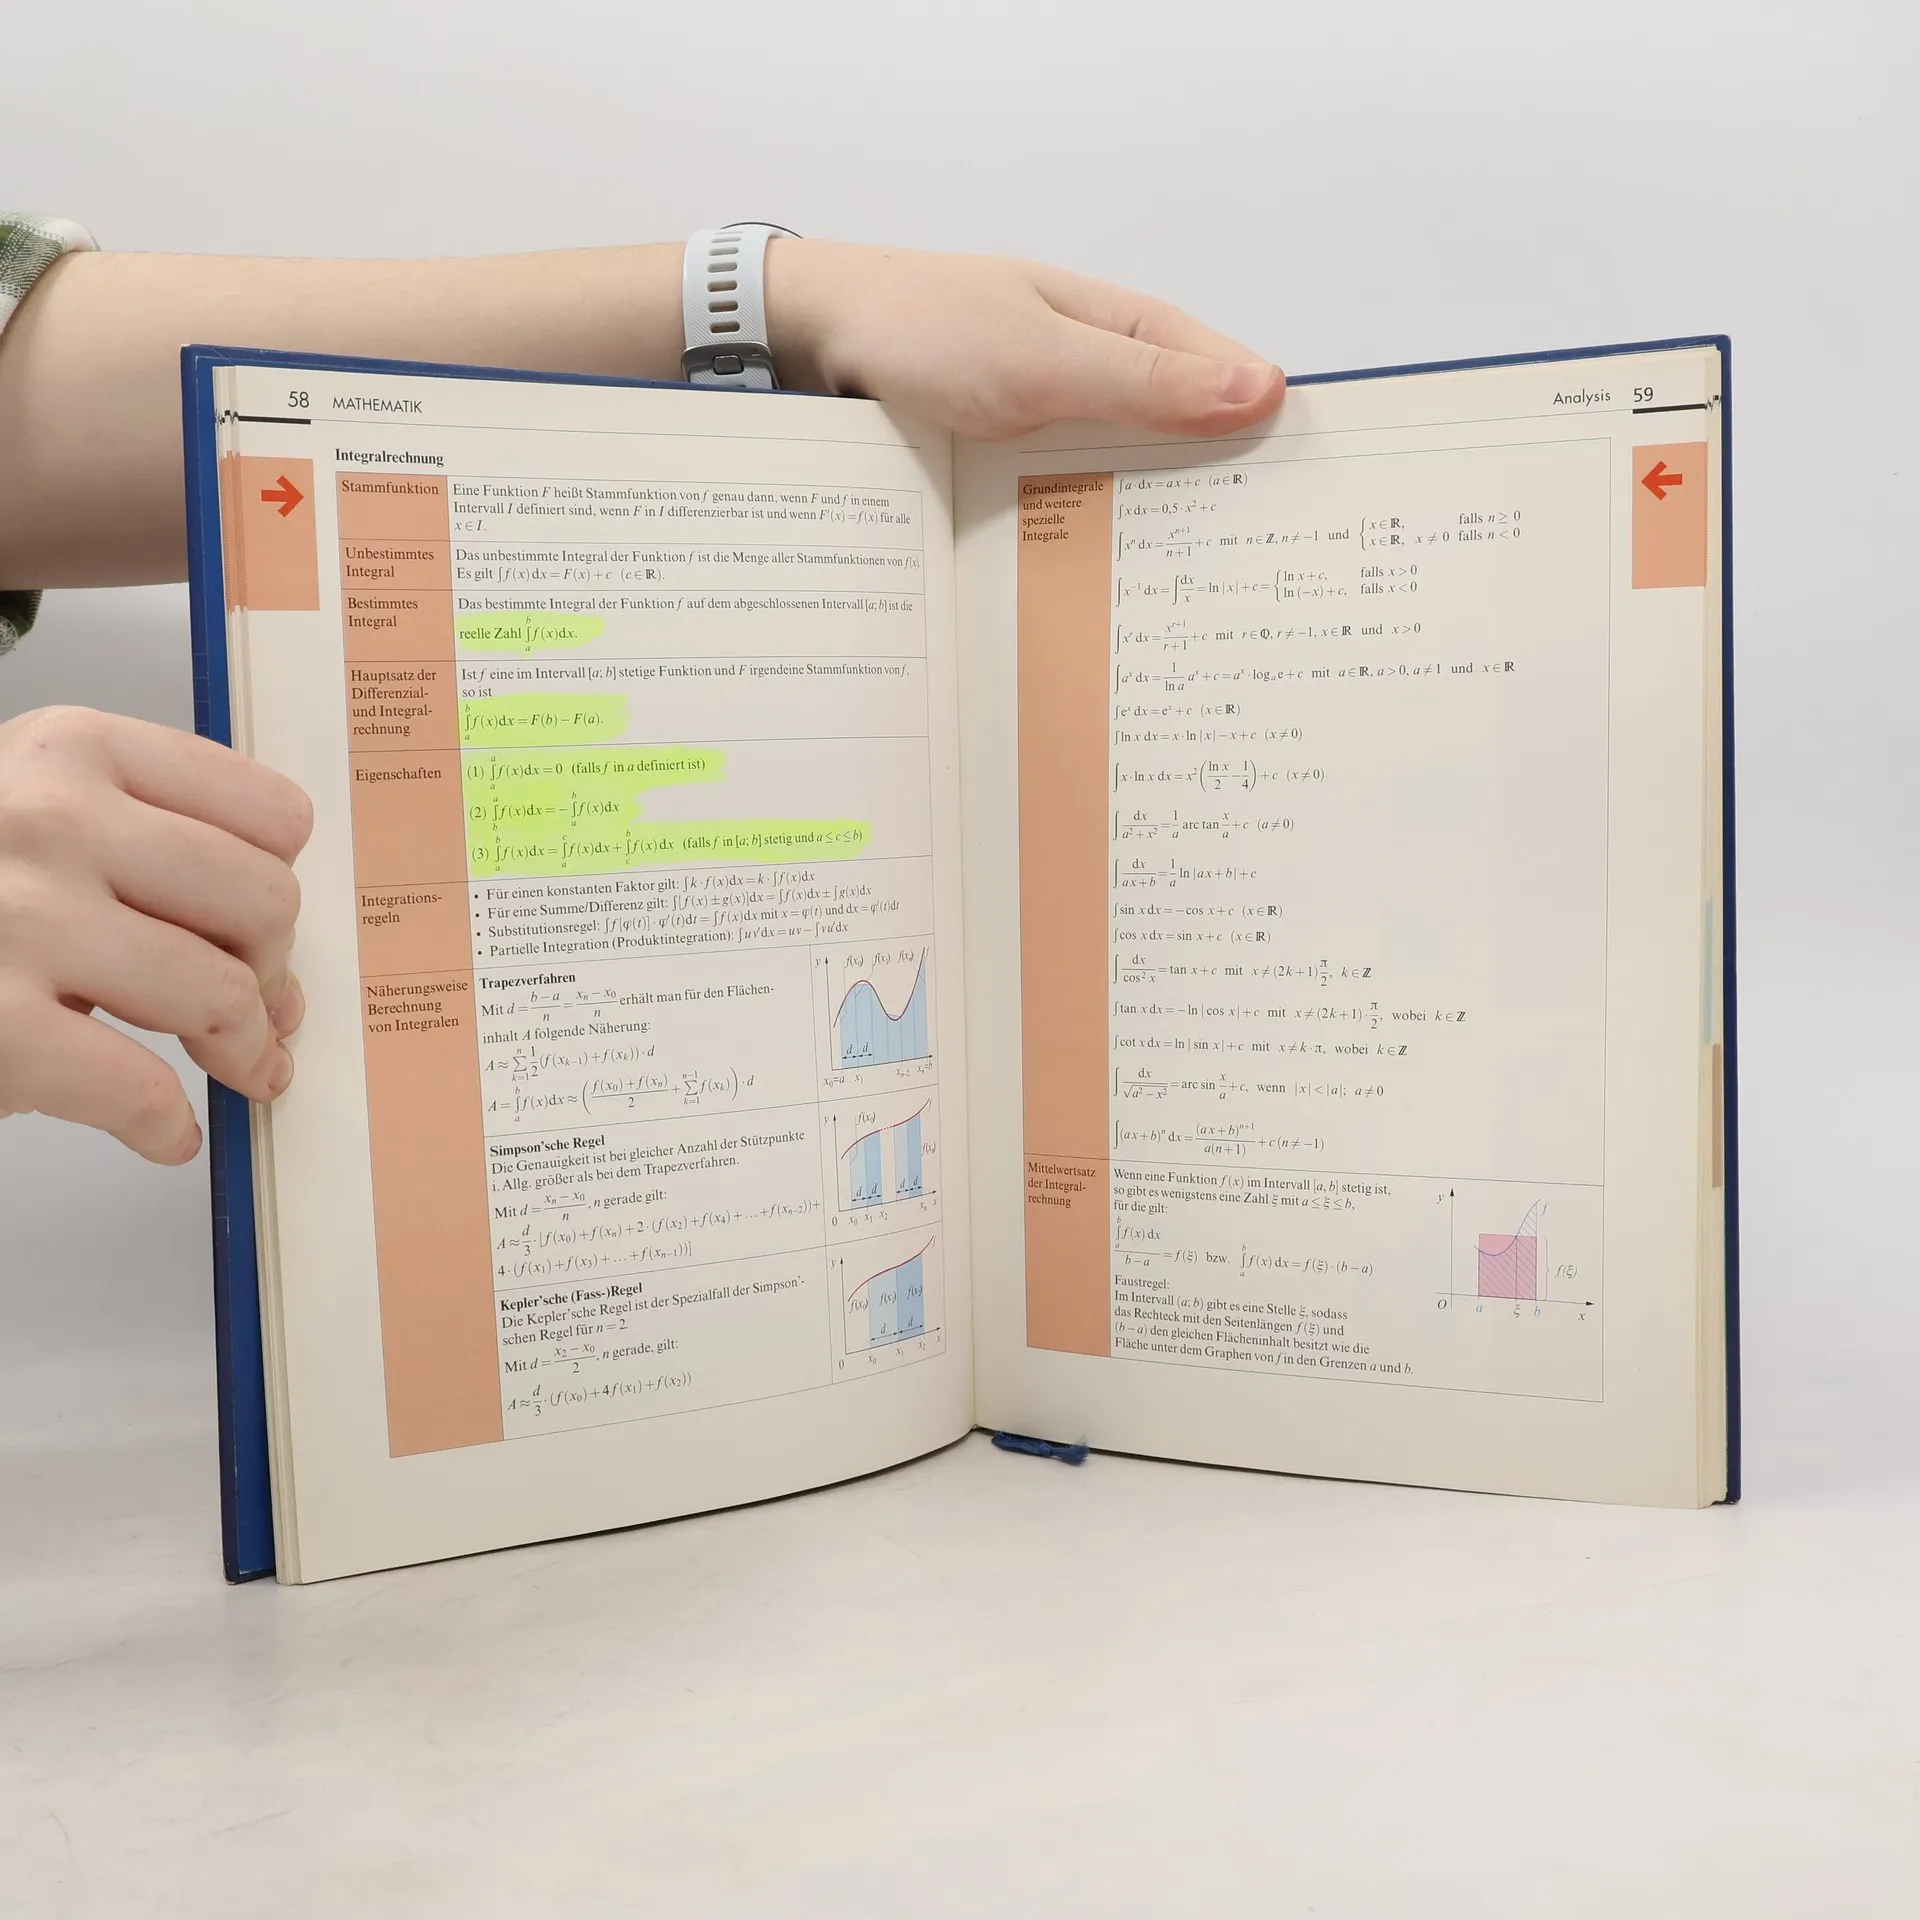 58 MATHEMATIK
Integralrechnung
Stammfunktion
Eine Funktion F heißt Stammfunktion von f genau dann, wenn F und f in einem
Intervall I definiert sind, wenn F in I differenzierbar ist und wenn F′(x) = f(x) für alle
x ∈ I.
Unbestimmtes
Integral
Das unbestimmte Integral der Funktion f ist die Menge aller Stammfunktionen von f(x).
Es gilt ∫f(x)dx = F(x) + c (c ∈ ℝ).
Bestimmtes
Integral
Das bestimmte Integral der Funktion f auf dem abgeschlossenen Intervall [a; b] ist die
reelle Zahl ∫_a^b f(x)dx.
Hauptsatz der
Differenzial-
und Integral-
rechnung
Ist f eine im Intervall [a; b] stetige Funktion und F irgendeine Stammfunktion von f,
so ist
∫_a^b f(x)dx = F(b) − F(a).
Eigenschaften
(1) ∫_a^a f(x)dx = 0 (falls f in a definiert ist)
(2) ∫_b^a f(x)dx = −∫_a^b f(x)dx
(3) ∫_a^b f(x)dx = ∫_a^c f(x)dx + ∫_c^b f(x)dx (falls f in [a; b] stetig und a ≤ c ≤ b)
Integrations-
regeln
• Für einen konstanten Faktor gilt: ∫k · f(x)dx = k · ∫f(x)dx
• Für eine Summe/Differenz gilt: ∫[f(x) ± g(x)]dx = ∫f(x)dx ± ∫g(x)dx
• Substitutionsregel: ∫f[φ(t)] · φ′(t)dt = ∫f(x)dx mit x = φ(t) und dx = φ′(t)dt
• Partielle Integration (Produktintegration): ∫uv′dx = uv − ∫vu′dx
Näherungsweise
Berechnung
von Integralen
Trapezverfahren
Mit d = (b − a)/n = (xₙ − x₀)/n erhält man für den Flächen-
inhalt A folgende Näherung:
A ≈ ∑_{k=1}^n 1/2 (f(x_{k−1}) + f(x_k)) · d
A = ∫_a^b f(x)dx ≈ ((f(x₀) + f(xₙ))/2 + ∑_{k=1}^{n−1} f(x_k)) · d
y f(x₀) f(x₁) f(xₙ) f
d d
x₀=a x₁ xₙ₋₂ xₙ=b
Simpson'sche Regel
Die Genauigkeit ist bei gleicher Anzahl der Stützpunkte
i. Allg. größer als bei dem Trapezverfahren.
Mit d = (xₙ − x₀)/n, n gerade gilt:
A ≈ d/3 · [f(x₀) + f(xₙ) + 2 · (f(x₂) + f(x₄) + … + f(xₙ₋₂)) +
4 · (f(x₁) + f(x₃) + … + f(xₙ₋₁))]
y f(x₀) f
f(xₙ)
d d d d
0 x₀ x₁ x₂ xₙ x
Kepler'sche (Fass-)Regel
Die Kepler'sche Regel ist der Spezialfall der Simpson'-
schen Regel für n = 2.
Mit d = (x₂ − x₀)/2, n gerade, gilt:
A ≈ d/3 · (f(x₀) + 4f(x₁) + f(x₂))
y f
f(x₀) f(x₁) f(x₂)
d d
0 x₀ x₁ x₂ x
Analysis 59
Grundintegrale
und weitere
spezielle
Integrale
∫a · dx = ax + c (a ∈ ℝ)
∫x dx = 0,5 · x² + c
∫xⁿ dx = xⁿ⁺¹/(n+1) + c mit n ∈ ℤ, n ≠ −1 und { x ∈ ℝ, falls n ≥ 0
x ∈ ℝ, x ≠ 0 falls n < 0
∫x⁻¹ dx = ∫dx/x = ln |x| + c = { ln x + c, falls x > 0
ln (−x) + c, falls x < 0
∫xʳ dx = xʳ⁺¹/(r+1) + c mit r ∈ ℚ, r ≠ −1, x ∈ ℝ und x > 0
∫aˣ dx = 1/(ln a) aˣ + c = aˣ · logₐ e + c mit a ∈ ℝ, a > 0, a ≠ 1 und x ∈ ℝ
∫eˣ dx = eˣ + c (x ∈ ℝ)
∫ln x dx = x · ln |x| − x + c (x ≠ 0)
∫x · ln x dx = x² ((ln x)/2 − 1/4) + c (x ≠ 0)
∫dx/(a² + x²) = 1/a arc tan x/a + c (a ≠ 0)
∫dx/(ax + b) = 1/a ln |ax + b| + c
∫sin x dx = −cos x + c (x ∈ ℝ)
∫cos x dx = sin x + c (x ∈ ℝ)
∫dx/cos² x = tan x + c mit x ≠ (2k + 1) π/2, k ∈ ℤ
∫tan x dx = −ln | cos x | + c mit x ≠ (2k + 1) · π/2, wobei k ∈ ℤ
∫cot x dx = ln | sin x | + c mit x ≠ k · π, wobei k ∈ ℤ
∫dx/√(a² − x²) = arc sin x/a + c, wenn |x| < |a|; a ≠ 0
∫(ax + b)ⁿ dx = (ax + b)ⁿ⁺¹/(a(n + 1)) + c (n ≠ −1)
Mittelwertsatz
der Integral-
rechnung
Wenn eine Funktion f(x) im Intervall [a, b] stetig ist,
so gibt es wenigstens eine Zahl ξ mit a ≤ ξ ≤ b,
für die gilt:
∫_a^b f(x) dx/(b − a) = f(ξ) bzw. ∫_a^b f(x) dx = f(ξ) · (b − a)
Faustregel:
Im Intervall (a; b) gibt es eine Stelle ξ, sodass
das Rechteck mit den Seitenlängen f(ξ) und
(b − a) den gleichen Flächeninhalt besitzt wie die
Fläche unter dem Graphen von f in den Grenzen a und b.
y f
f(ξ)
O a ξ b x